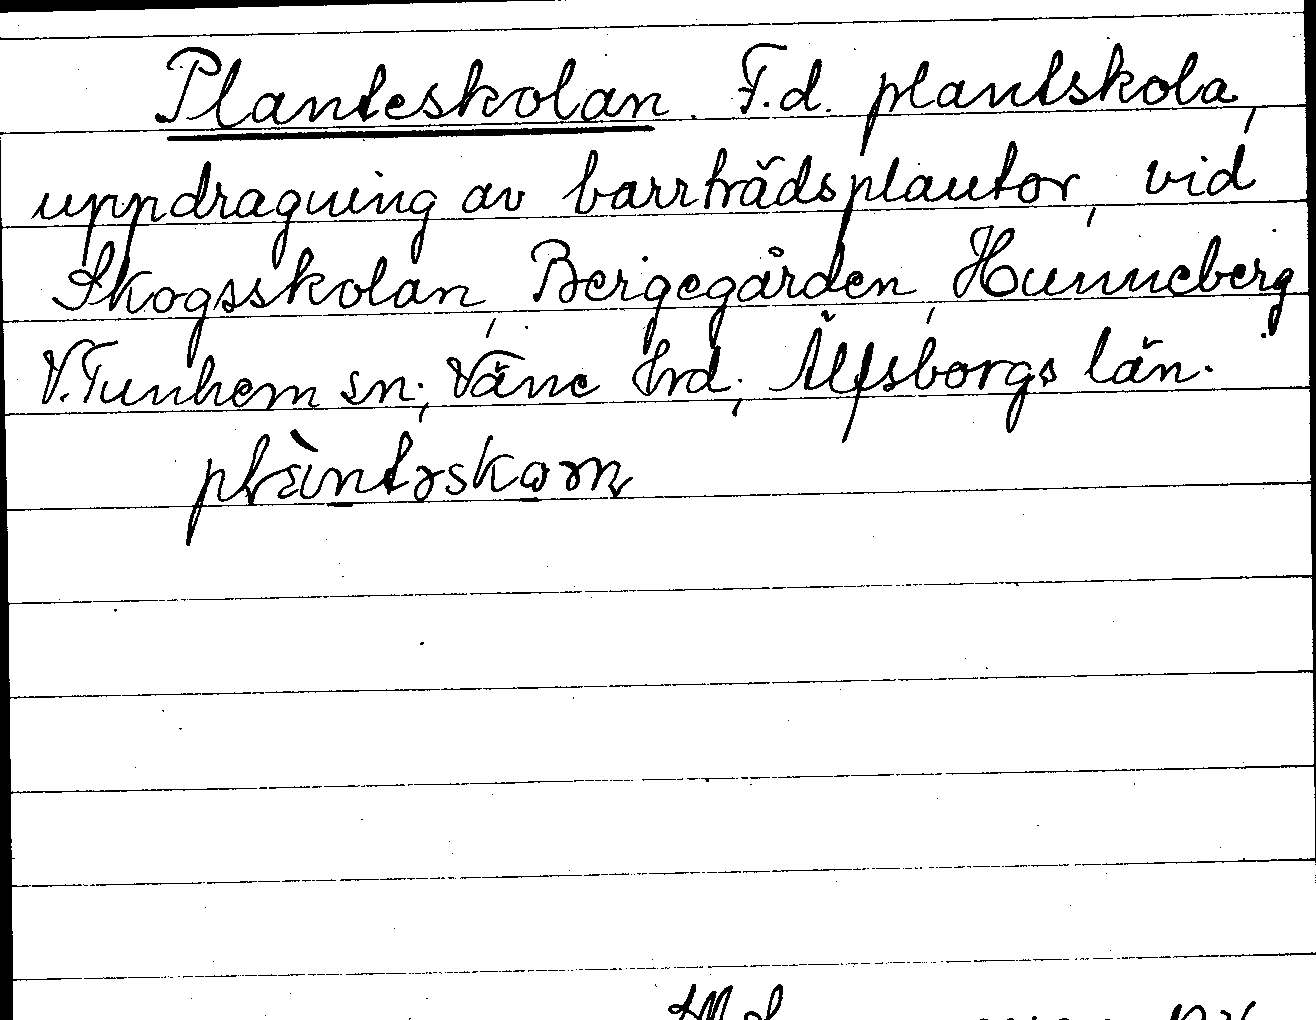 Planteskolan. F.d. plantskola,
uppdragning av barrträdsplantor, vid
Skogsskolan, Bergegården, Hunneberg
V. Tunhem sn; Väne hrd; Älfsborgs län.